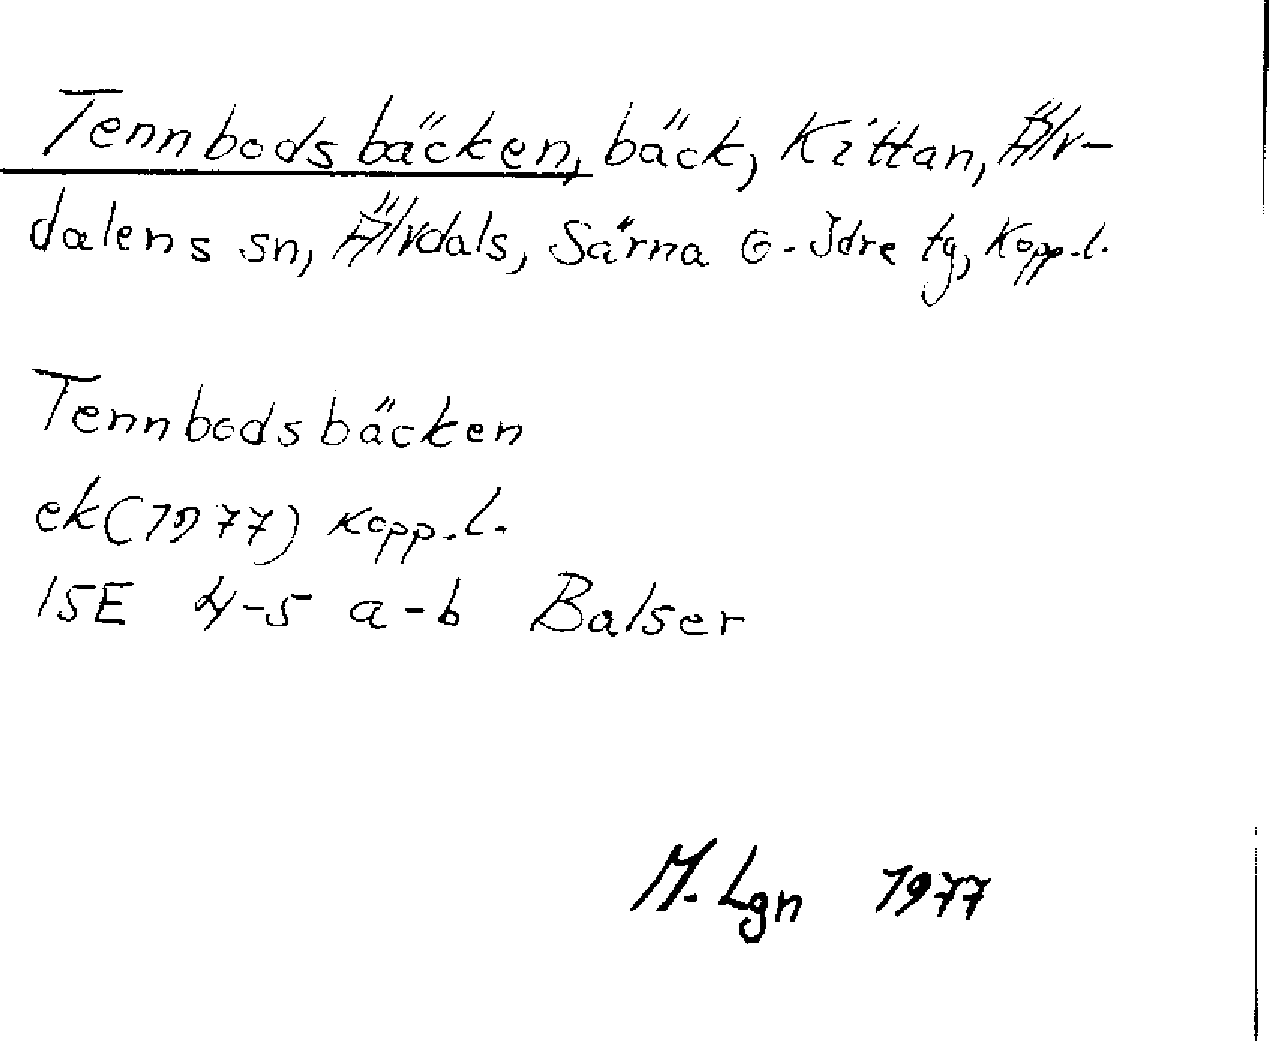 Tennbodsbäcken, bäck, Kittan, Älv-
dalens sn, Älvdals, Särna o. Idre tg, Kopp.l.
Tennbodsbäcken
ek(1977) Kopp.l.
15E 4-5 a-b Balser
M. Lgn 1977